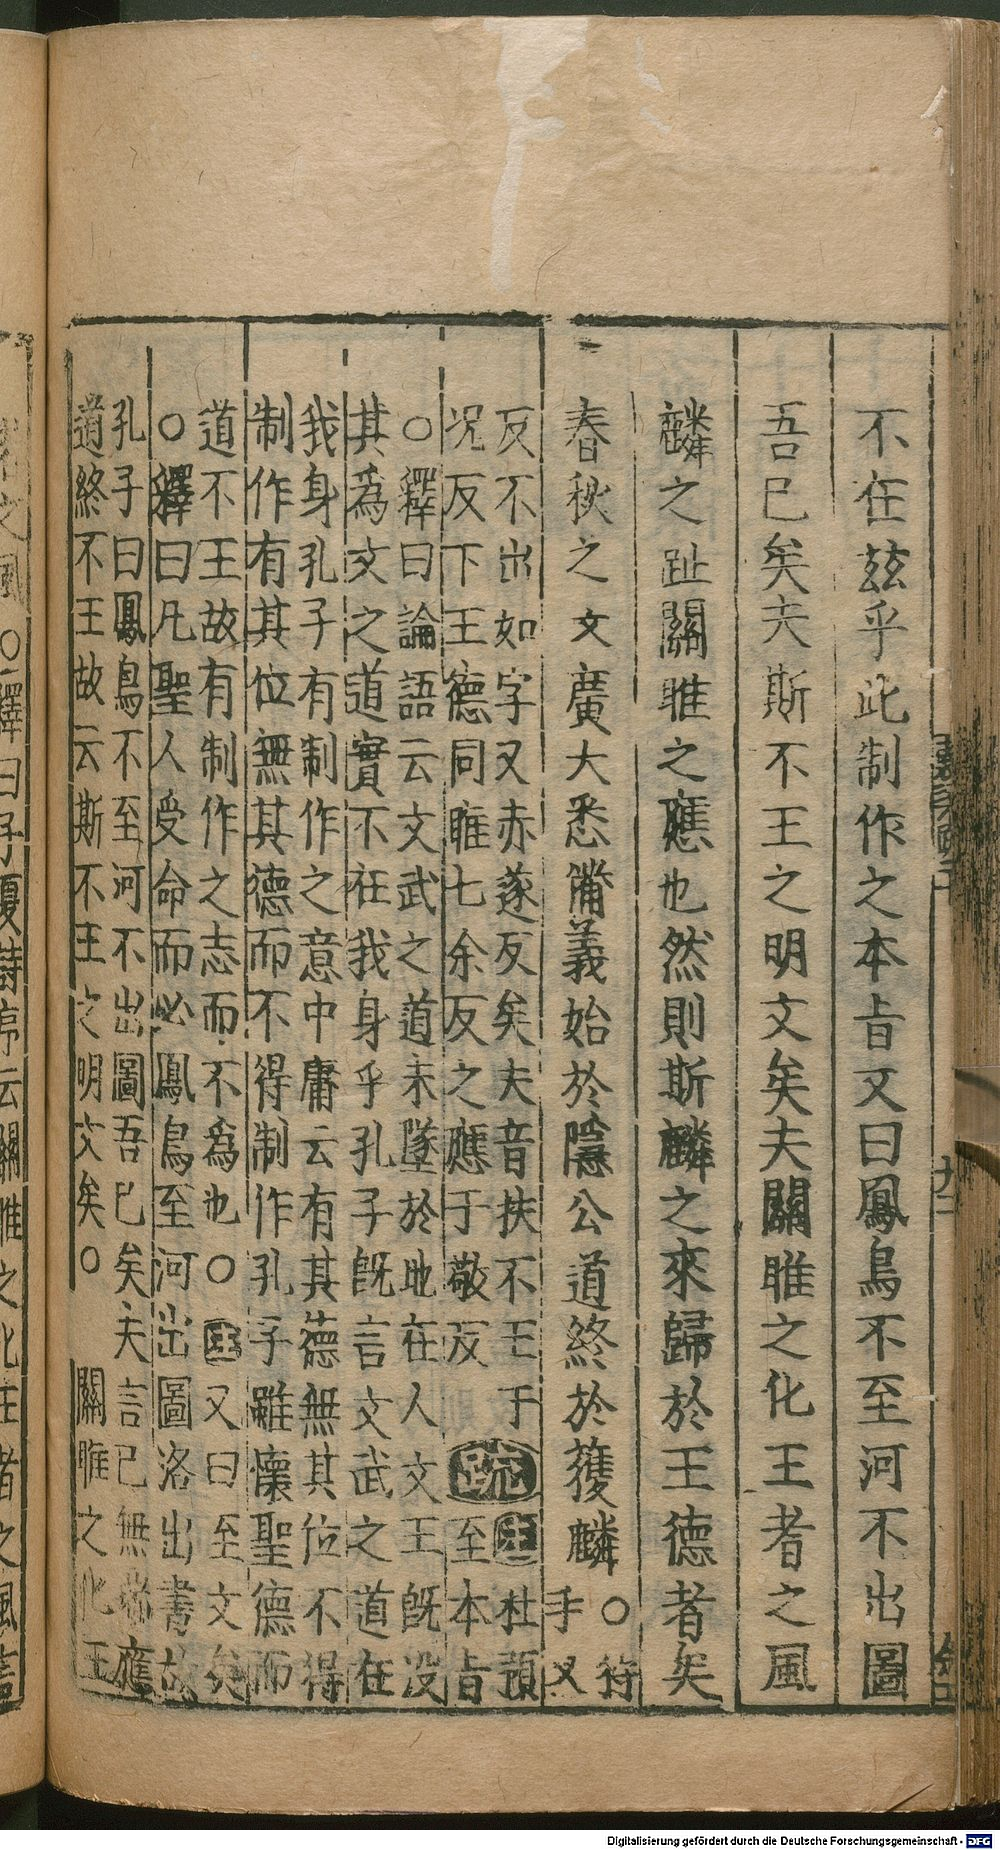 不在茲乎此制作之本㫖又曰鳳鳥不至河不出圖
吾已矣夫斯不王之明文矣夫關雎之化王者之風
麟之趾關雎之應也然則斯麟之來歸於王德者矣
春秋之文廣大悉備義始於隱公道終於獲麟
○符
手又
反不出如字又赤遂反矣夫音扶不王于
況反下王德同雎七余反之應于敬反
疏
注杜預
至本㫖
○釋曰論語云文武之道未墜於地在人文王既没
其爲文之道實不在我身乎孔子既言文武之道在
我身孔子有制作之意中庸云有其德無其位不得
制作有其位無其德而不得制作孔子雖懷聖德而
道不王故有制作之志而不爲也○注又曰至文矣
○釋曰凡聖人受命而必鳳鳥至河出圖洛出書故
孔子曰鳳鳥不至河不出圖吾已矣夫言已無瑞應
道終不王故云斯不王之明文矣○
關雎之化王
之風○釋曰子夏詩序云關雎之化王者之風言
Digitalisierung gefördert durch die Deutsche Forschungsgemeinschaft - DFG